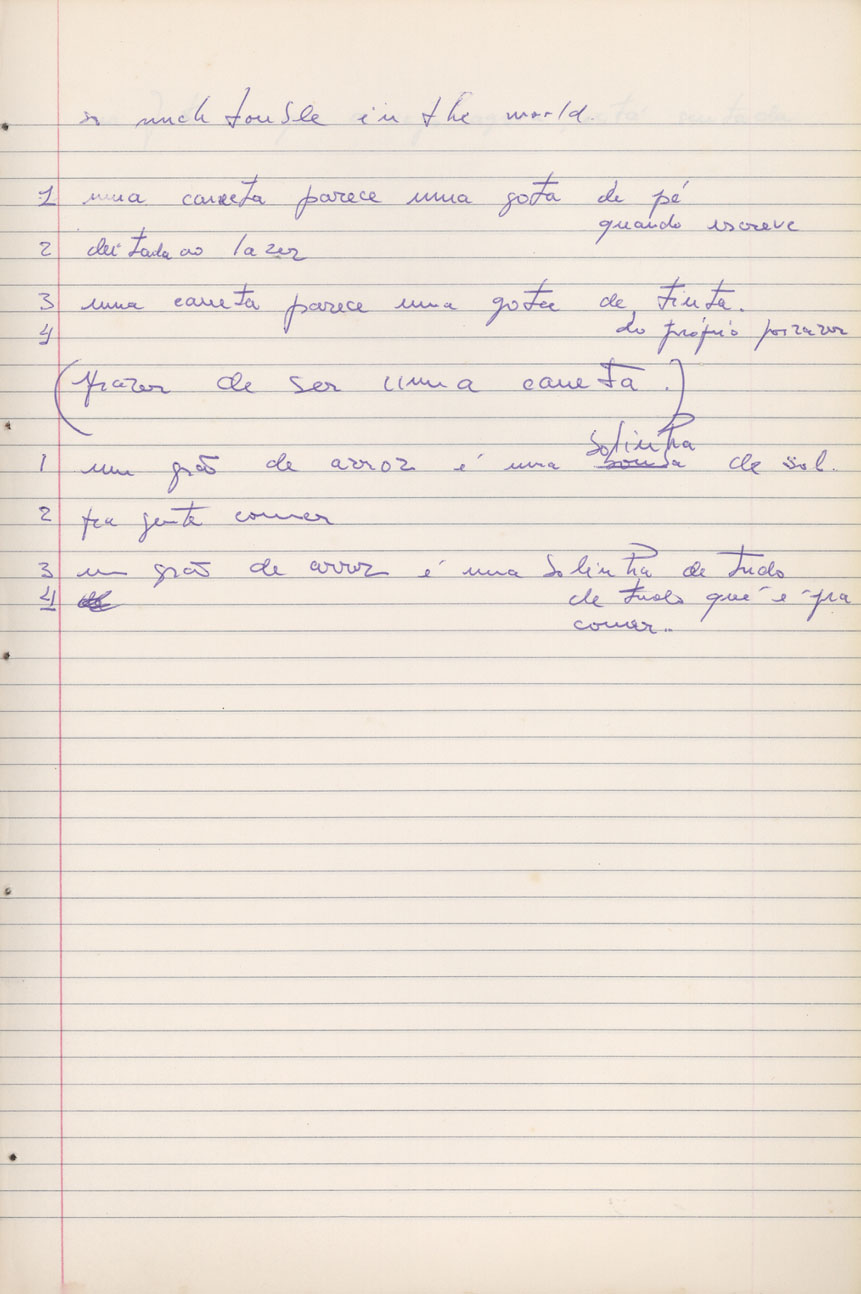 so much trouble in the world.
1 uma caneta parece uma gota de pé
quando escreve
2 deitada ao lazer
3 uma caneta parece uma gota de tinta.
4 do próprio
(prazer de ser uma caneta.)
solinha
1 um grão de arroz é uma de sol.
2 pra gente comer
3 um grão de arroz é uma solinha de tudo
4 de tudo que é pra
comer..